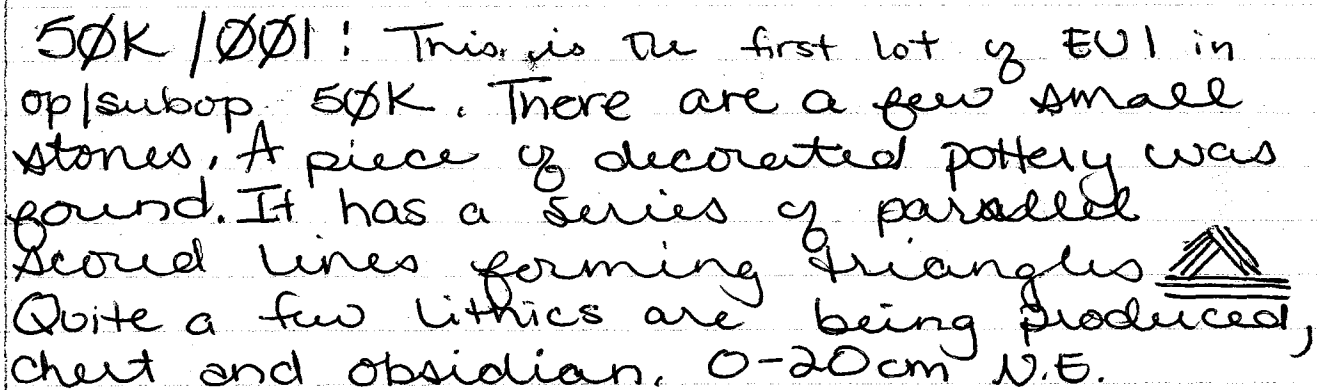 50K/001: This is the first lot of EU1 in
op/subop 50K. There are a few small
stones. A piece of decorated pottery was
found. It has a series of parallel
scored lines forming triangles
Quite a few lithics are being produced,
chert and obsidian. 0-20cm N.E.